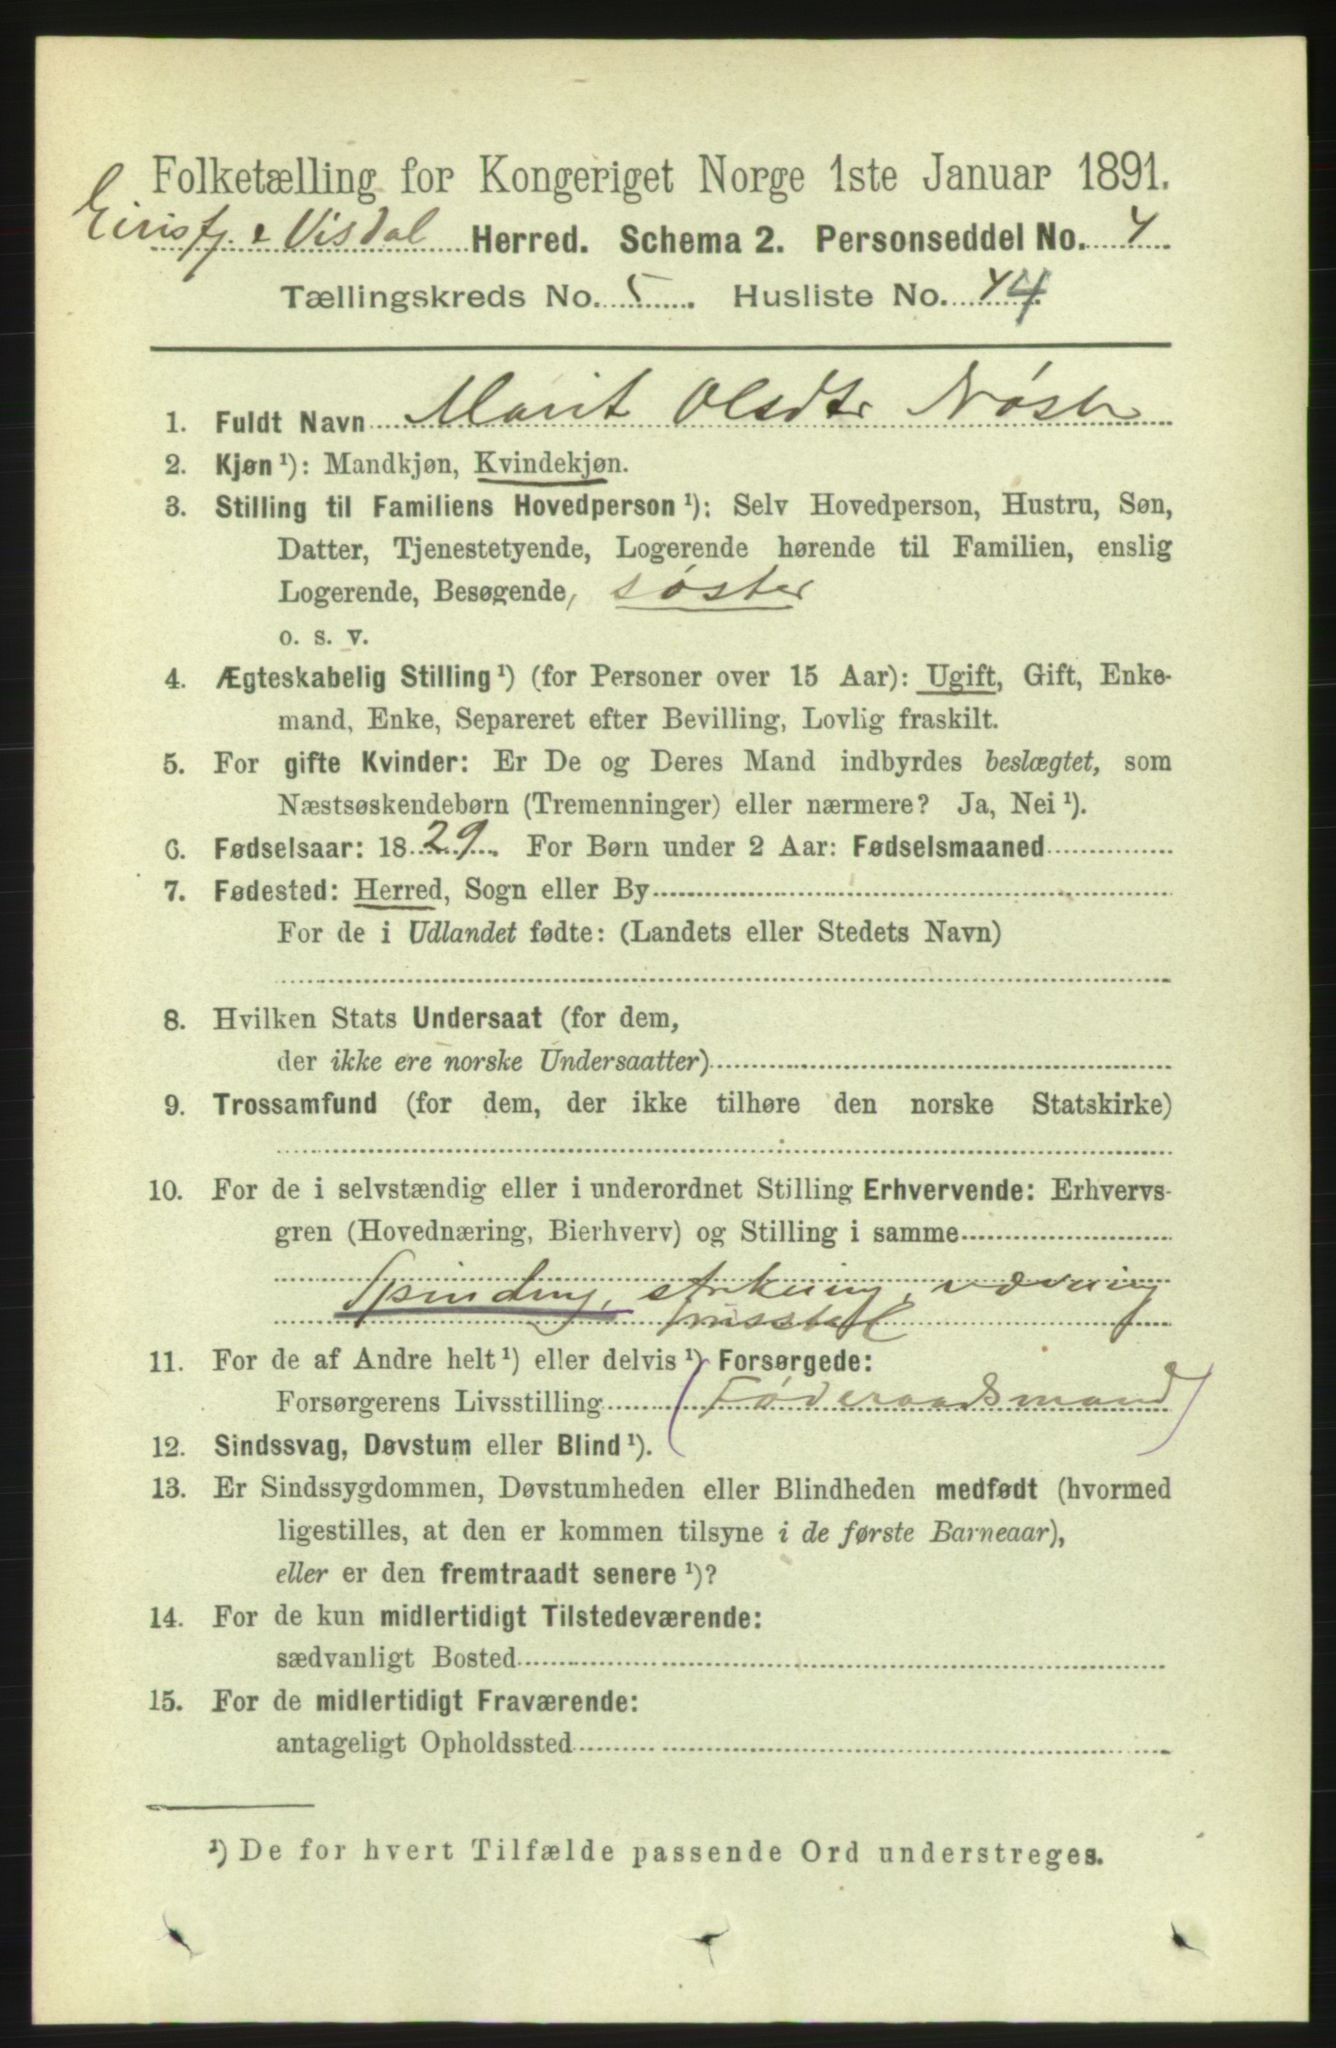 Folketælling for Kongeriget Norge 1ste Januar 1891.
Eirisfj. & Visdal Herred. Schema 2. Personseddel No. 4
Tællingskreds No. 5. Husliste No. 44
1. Fuldt Navn Marit Olsdtr Nøste
2. Kjøn ¹): Mandkjøn, Kvindekjøn.
3. Stilling til Familiens Hovedperson ¹): Selv Hovedperson, Hustru, Søn,
Datter, Tjenestetyende, Logerende hørende til Familien, enslig
Logerende, Besøgende, søster
o. s. v.
4. Ægteskabelig Stilling ¹) (for Personer over 15 Aar): Ugift, Gift, Enke-
mand, Enke, Separeret efter Bevilling, Lovlig fraskilt.
5. For gifte Kvinder: Er De og Deres Mand indbyrdes beslægtet, som
Næstsøskendebørn (Tremenninger) eller nærmere? Ja, Nei ¹).
6. Fødselsaar: 1829. For Børn under 2 Aar: Fødselsmaaned
7. Fødested: Herred, Sogn eller By
For de i Udlandet fødte: (Landets eller Stedets Navn)
8. Hvilken Stats Undersaat (for dem,
der ikke ere norske Undersaatter)
9. Trossamfund (for dem, der ikke tilhøre den norske Statskirke)
10. For de i selvstændig eller i underordnet Stilling Erhvervende: Erhvervs-
gren (Hovednæring, Bierhverv) og Stilling i samme
Spinding, strikning, vævning
11. For de af Andre helt ¹) eller delvis ¹) Forsørgede:
Forsørgerens Livsstilling (Føderaadsmand)
12. Sindssvag, Døvstum eller Blind ¹).
13. Er Sindssygdommen, Døvstumheden eller Blindheden medfødt (hvormed
ligestilles, at den er kommen tilsyne i de første Barneaar),
eller er den fremtraadt senere ¹)?
14. For de kun midlertidigt Tilstedeværende:
sædvanligt Bosted
15. For de midlertidigt Fraværende:
antageligt Opholdssted
¹) De for hvert Tilfælde passende Ord understreges.